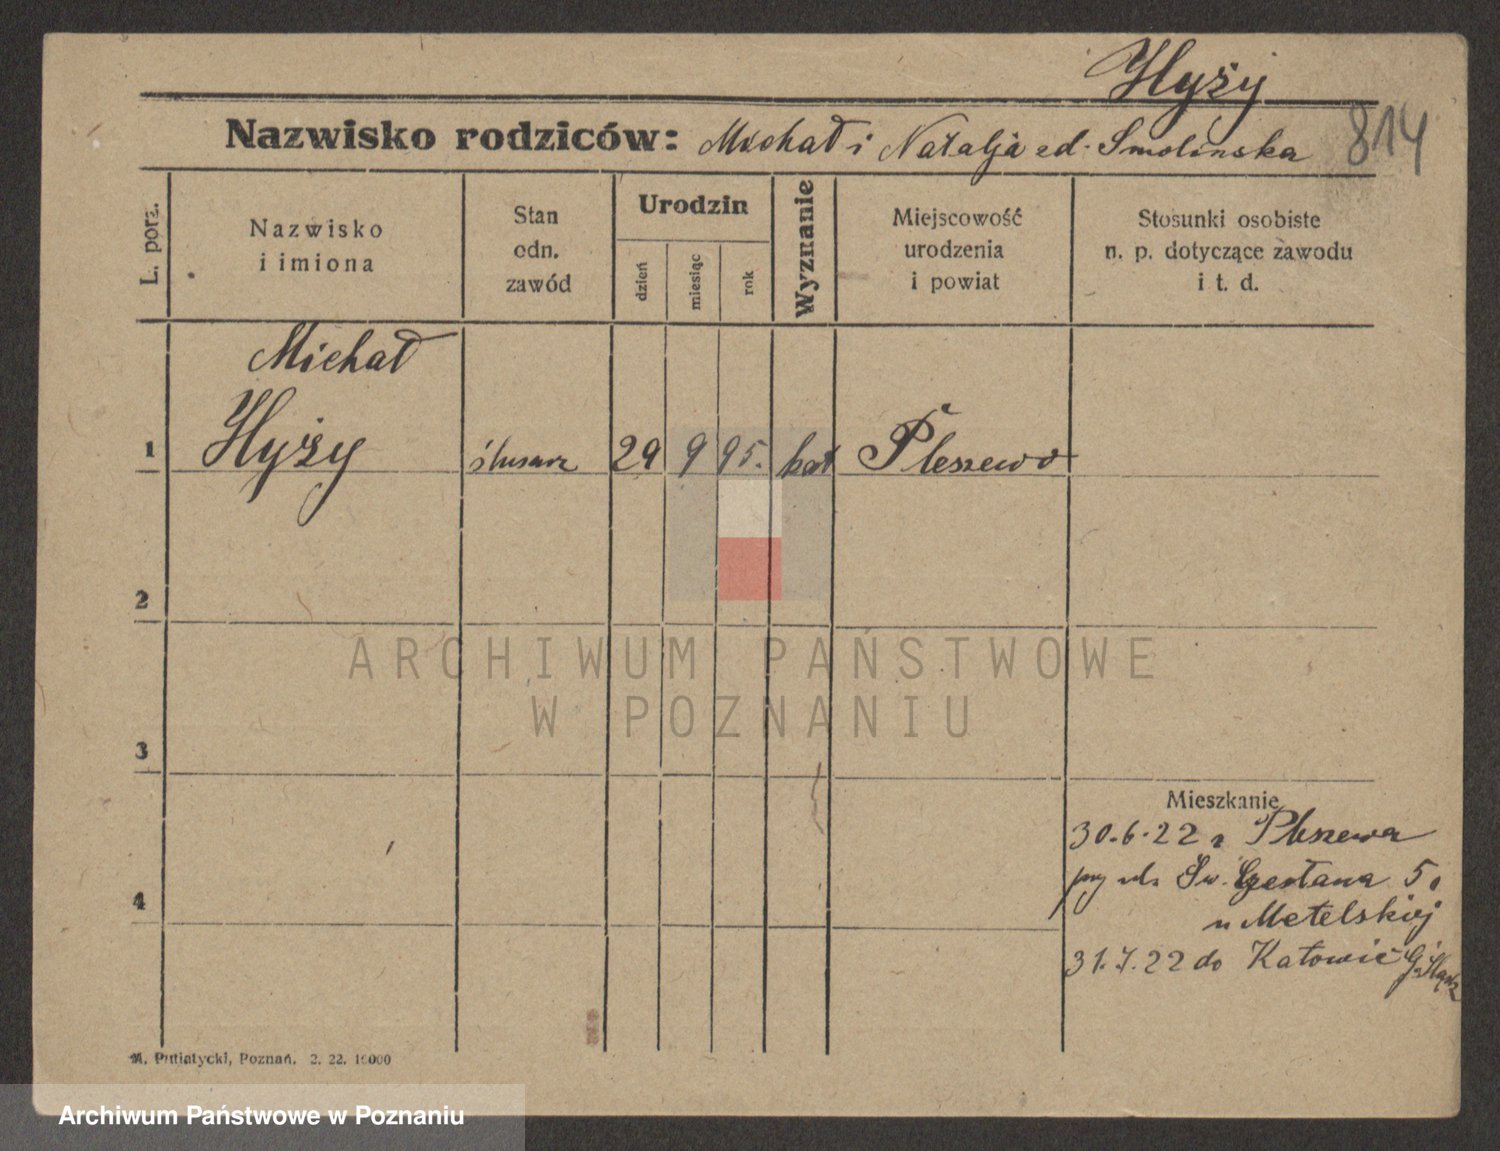 Hyży
Nazwisko rodziców: Michał i Natalja zd. Smolinska
814
L. porz.
Nazwisko
i imiona
Stan
odn.
zawód
Urodzin
dzień
miesiąc
rok
Wyznanie
Miejscowość
urodzenia
i powiat
Stosunki osobiste
n. p. dotyczące zawodu
i t. d.
Michał
1 Hyży ślusarz 29 9 95. kat Pleszewo
2
3
4
ARCHIWUM PAŃSTWOWE
W POZNANIU
Mieszkanie
30.6.22 z Pleszewa
przy ul. Św. Czesława 5
u Metelskiej
31.7.22 do Katowic G. Śląsk
M. Putiatycki, Poznań. 2. 22. 10000
Archiwum Państwowe w Poznaniu